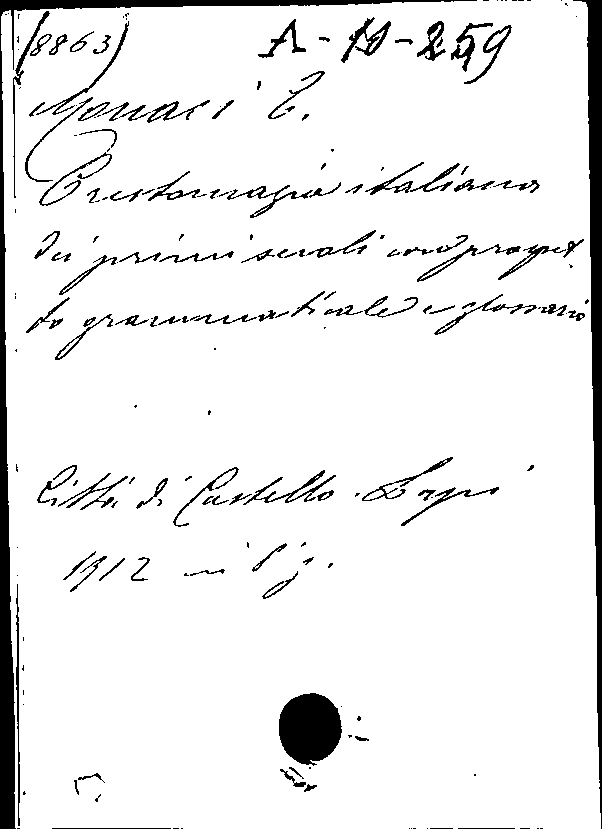 (8863) A-10-259
Monaci E.
Crestomazia italiana
dei primi secoli con prospet
to grammaticale e glossario
Città di Castello. Lapi
1912 in 8° g.